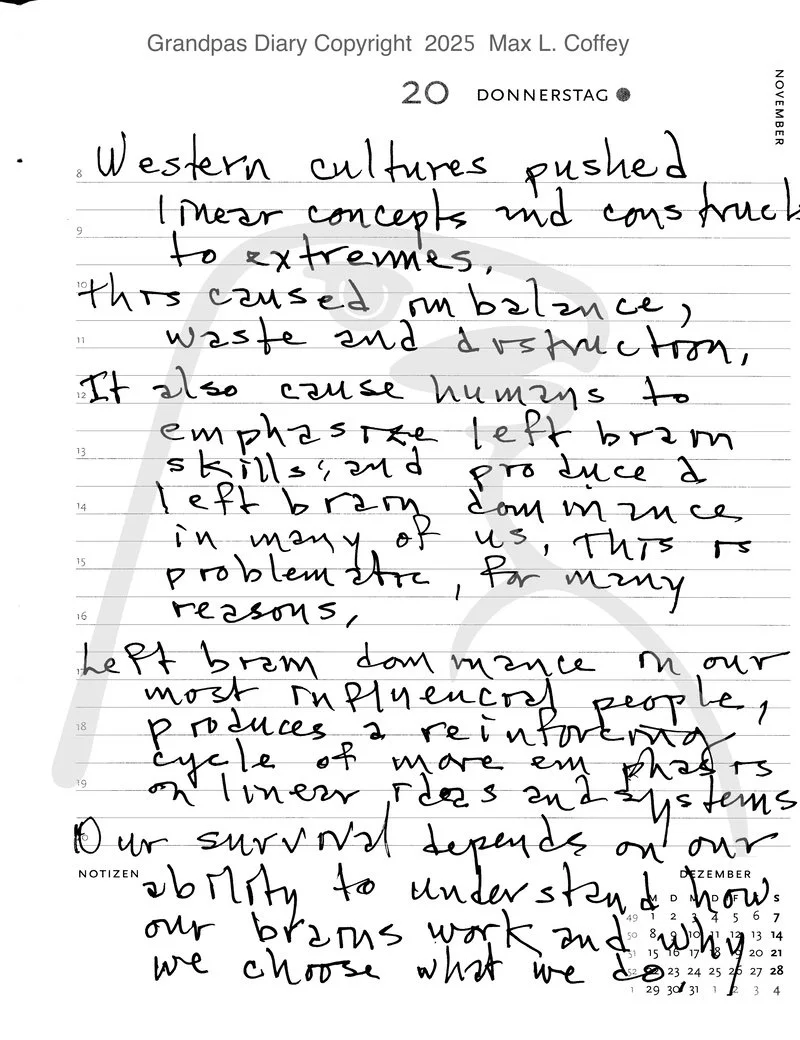 Grandpas Diary Copyright 2025 Max L. Coffey
20 DONNERSTAG
NOVEMBER
8 Western cultures pushed
linear concepts and construck
9
to extremes.
10 this caused imbalance,
11 waste and distruction.
12 It also cause humans to
emphasize left brain
13 skills; and produce a
14 left brain dominance
in many of us. This is
15 problematic, for many
16 reasons,
17 Left brain dominance in our
most influencial people,
18 produces a reinforcing
cycle of more emphasis
19 on linear ideas and systems
20 Our survival depends on our
NOTIZEN
ability to understand how
our brains work and why
we choose what we do.
DEZEMBER
M D M D F S S
49 1 2 3 4 5 6 7
50 8 9 10 11 12 13 14
51 15 16 17 18 19 20 21
52 22 23 24 25 26 27 28
1 29 30 31 1 2 3 4